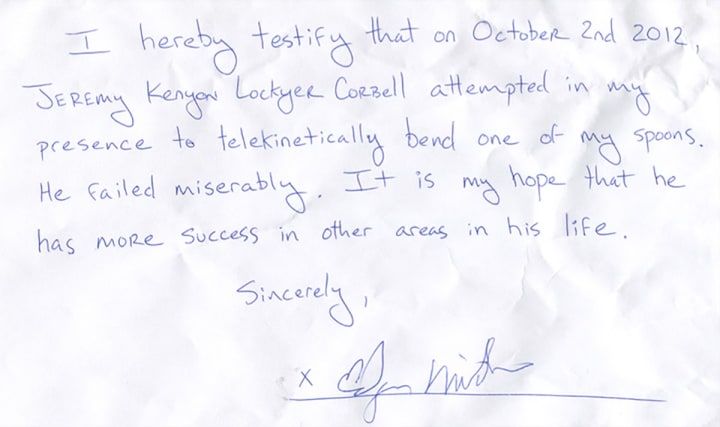 I hereby testify that on October 2nd 2012,
Jeremy Kenyon Lockyer Corbell attempted in my
presence to telekinetically bend one of my spoons.
He failed miserably. It is my hope that he
has more success in other areas in his life.
Sincerely,
x